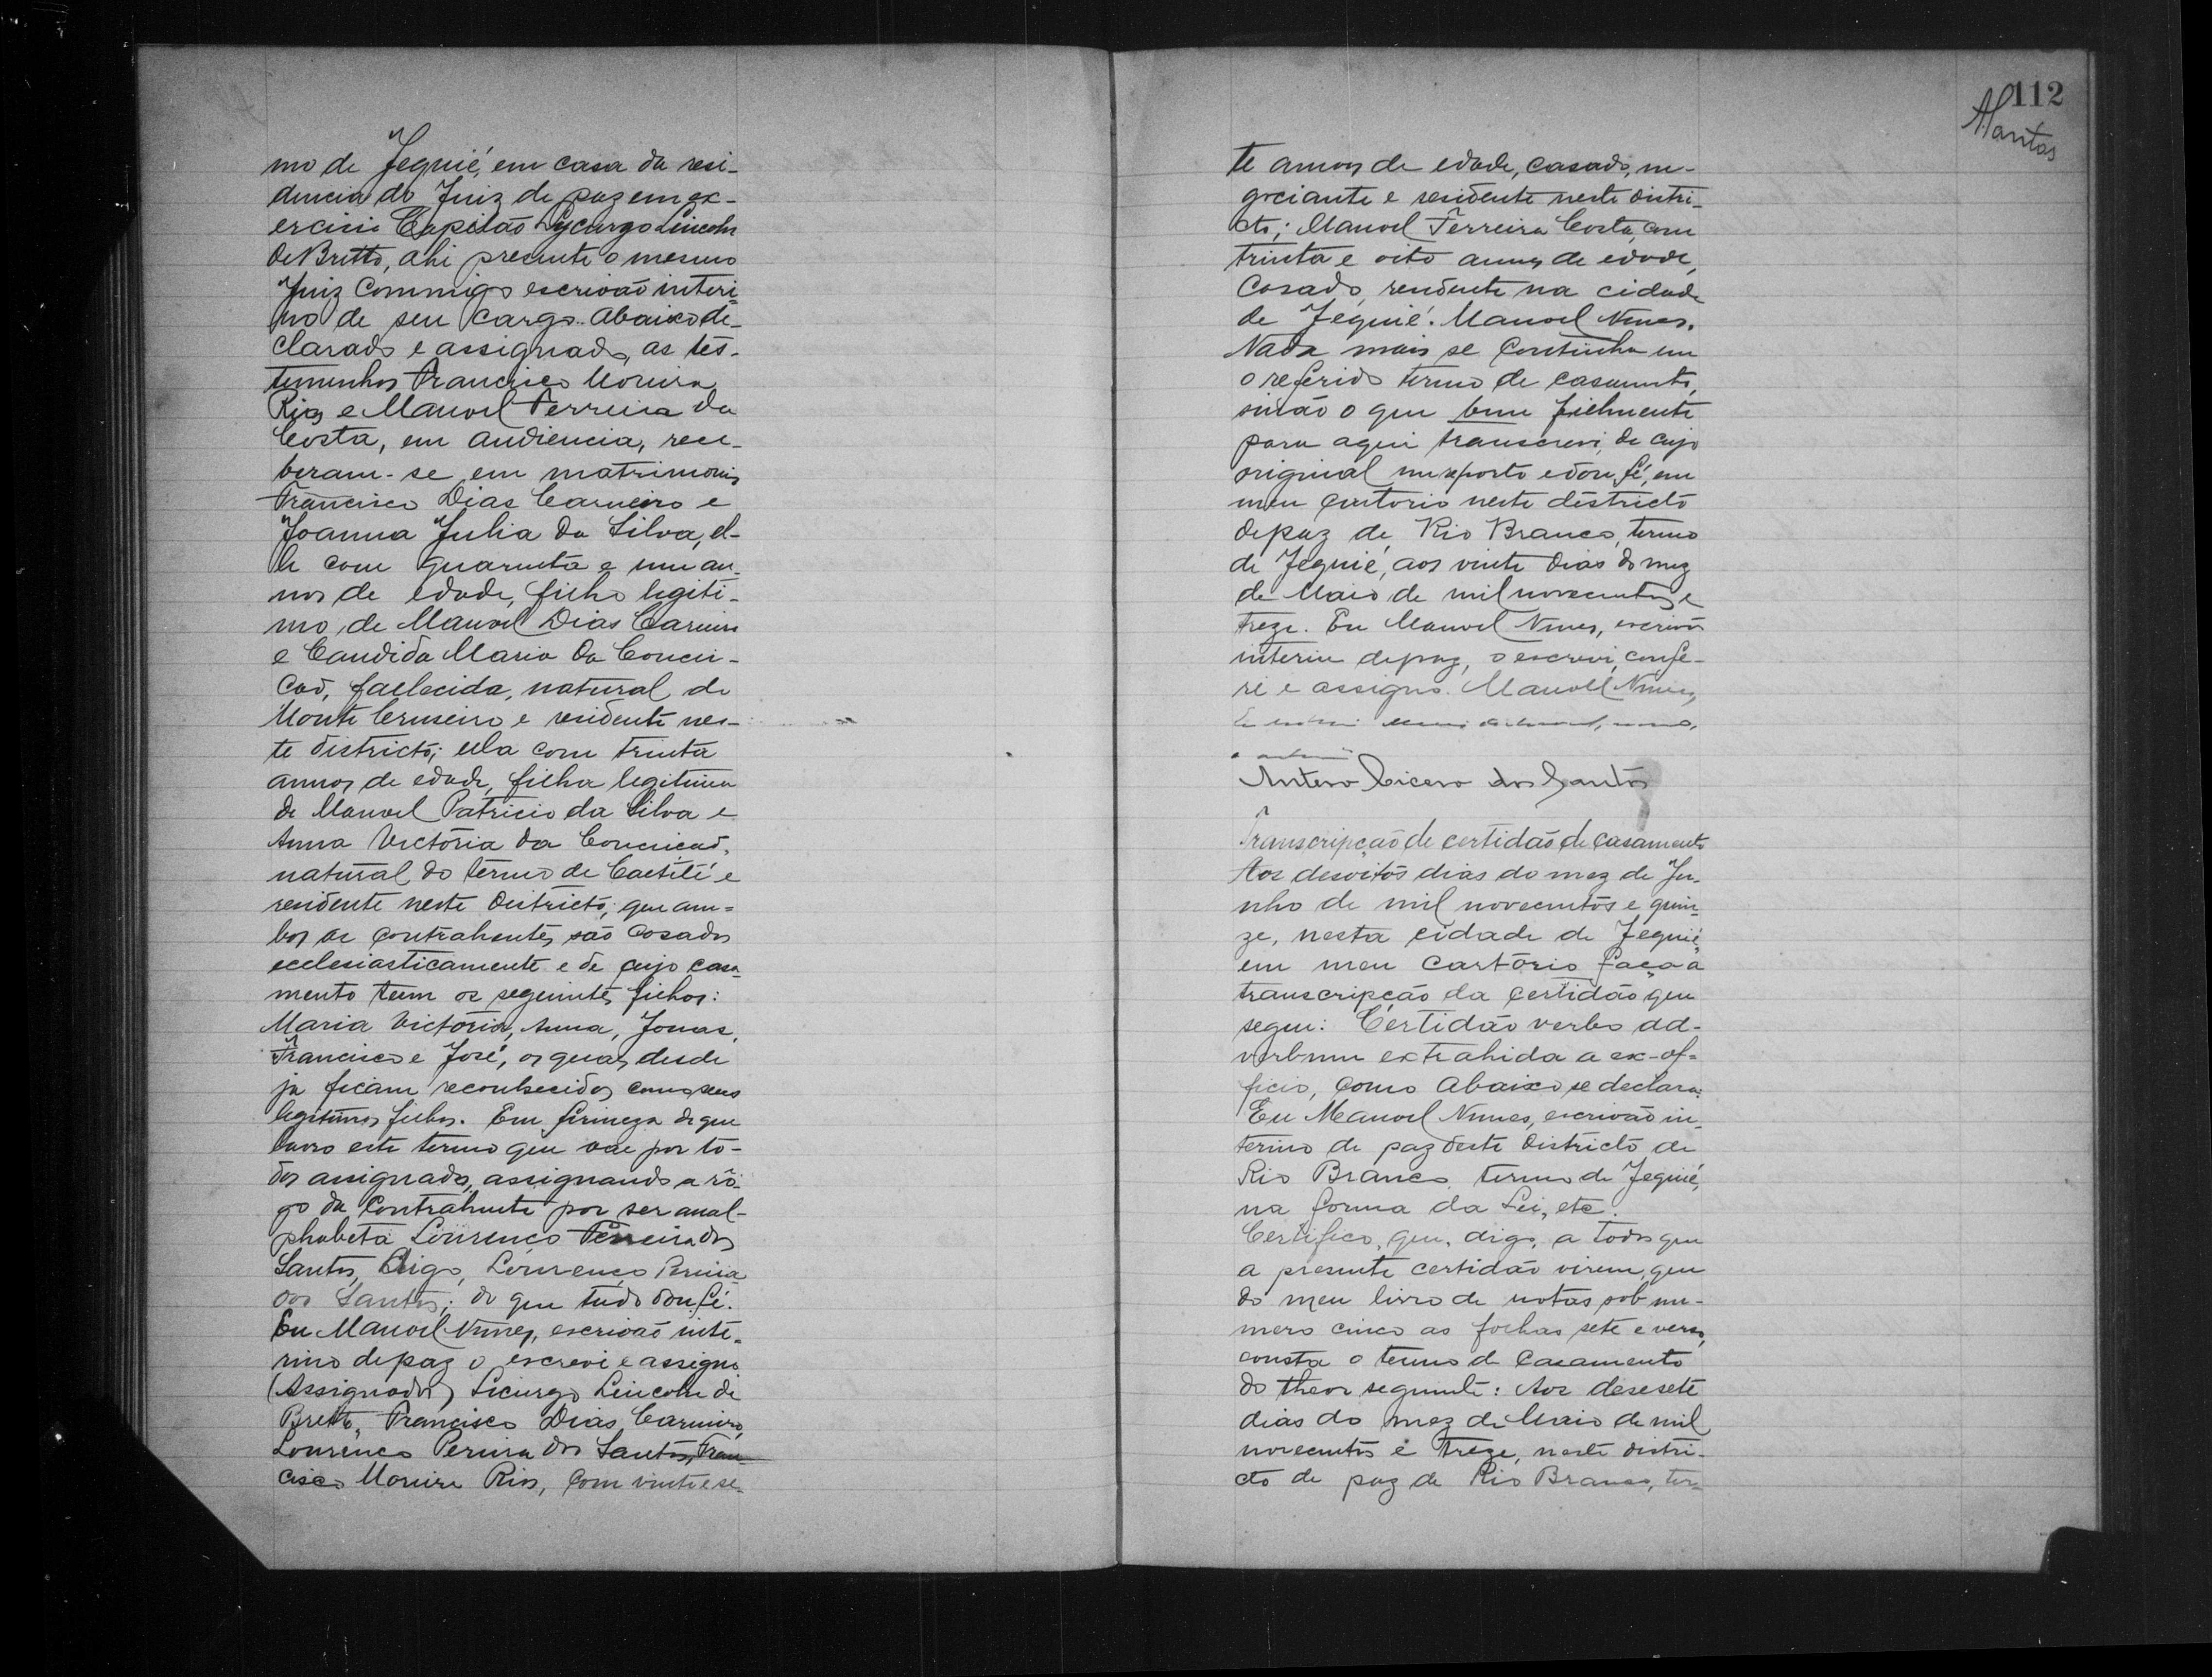 mo de Jequié, em casa da resi-
dencia do Juiz de paz em ex-
ercicio Capitão Lycurgo Lincoln
de Britto, ahi presente o mesmo
Juiz commigo escrivão interi-
no de seu cargo abaixo de-
clarado e assignado, as tes-
temunhas Francisco Moreira
Rios e Manoel Ferreira da
Costa, em audiencia, rece-
beram-se em matrimonio
Francisco Dias Carneiro e
Joanna Julia da Silva, el-
le com quarenta e um an-
nos de edade, filho legiti-
mo de Manoel Dias Carneiro
e Candida Maria da Concei-
ção, fallecida, natural de
Monte Cruseiro e residente nes-
te districto; ella com trinta
annos de edade, filha legitima
de Manoel Patricio da Silva e
Anna Victoria da Conceição,
natural do termo de Caetité e
residente neste districto; que am-
bos os contrahentes são casados
ecclesiasticamente e de cujo casa-
mento teem os seguintes filhos:
Maria Victoria, Anna, Jonas,
Francisco e José, os quaes desde
já ficam reconhecidos como seus
legitimos filhos. Em firmeza do que
lavro este termo que vae por to-
dos assignado, assignando a rô-
go da contrahente por ser anal-
phabeta Lourenço Ferreira dos
Santos, Digo, Lourenço Pereira
dos Santos; do que tudo dou fé.
Eu Manoel Nunes, escrivão inte-
rino de paz o escrevi e assigno
(Assignados) Licurgo Lincoln de
Britto, Francisco Dias Carneiro,
Lourenço Pereira dos Santos, Fran-
cisco Moreira Rios, com vinte e se-
112
ASantos
te annos de edade, casado, ne-
gociante e residente neste distri-
cto; Manoel Ferreira Costa, com
trinta e oito annos de edade,
casado, residente na cidade
de Jequié. Manoel Nunes.
Nada mais se continha em
o referido termo de casamento,
sinão o que bem fielmente
para aqui transcrevi, de cujo
original me reporto e dou fé, em
meu cartorio neste districto
de paz de Rio Branco, termo
de Jequié, aos vinte dias do mez
de Maio de mil novecentos e
treze. Eu Manoel Nunes, escrivão
interino de paz, o escrevi, confe-
ri e assigno. Manoel Nunes,
Antero Cicero dos Santos
Transcripção de certidão de casamento
Aos desoitos dias do mez de Ju-
nho de mil novecentos e quin-
ze, nesta cidade de Jequié,
em meu cartório faço a
transcripção da certidão que
segue: Certidão verbo ad-
verbum extrahida a ex-of-
ficio, como abaixo se declara:
Eu Manoel Nunes, escrivão in-
terino de paz deste districto de
Rio Branco, termo de Jequié,
na forma da Lei, etc.
Certifico, que, digo, a todos que
a presente certidão virem, que
do meu livro de notas sob nu-
mero cinco as folhas sete e verso,
consta o termo de casamento
do theor seguinte: Aos desesete
dias do mez de Maio de mil
novecentos e treze, neste distri-
cto de paz de Rio Branco, ter-